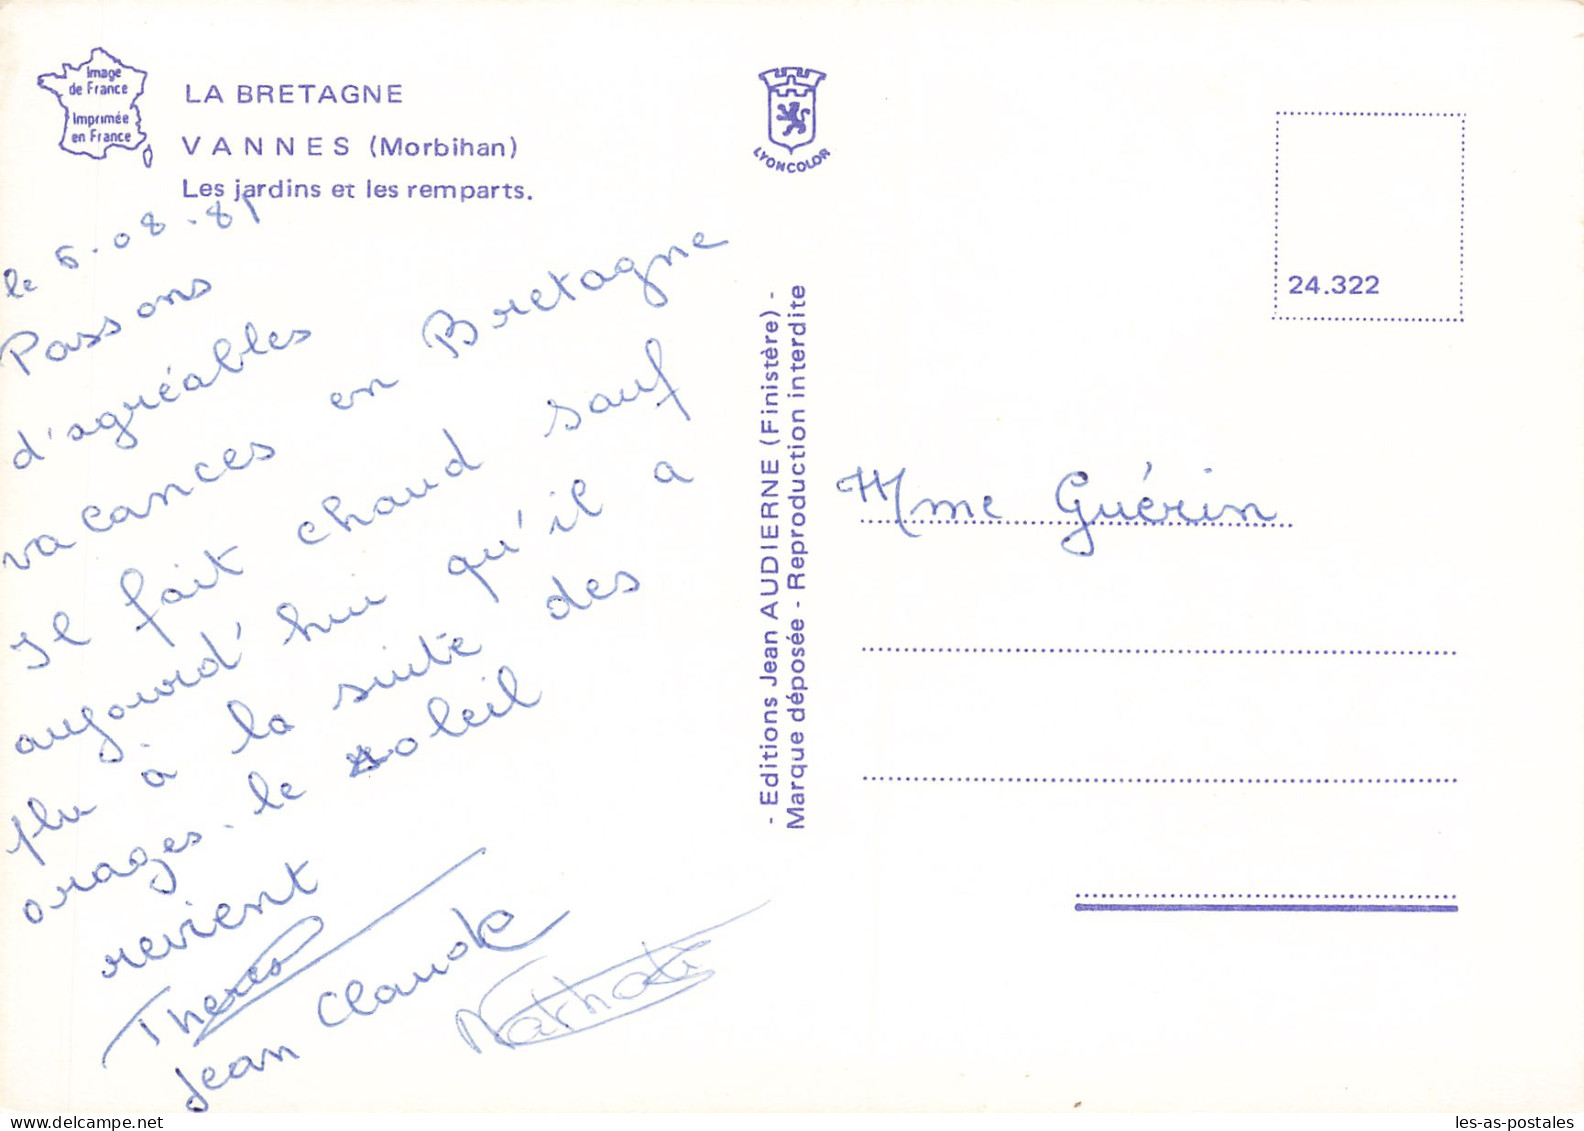 Image
de France
Imprimée
en France
LA BRETAGNE
VANNES (Morbihan)
Les jardins et les remparts.
le 6.08.81
Passons
d'agréables
vacances en Bretagne
Il fait chaud sauf
aujourd'hui qu'il a
plu à la suite des
orages. le soleil
revient
Jean Claude
LYONCOLOR
- Editions Jean AUDIERNE (Finistère) -
Marque déposée - Reproduction interdite
24.322
Mme Guérin
les-as-postales